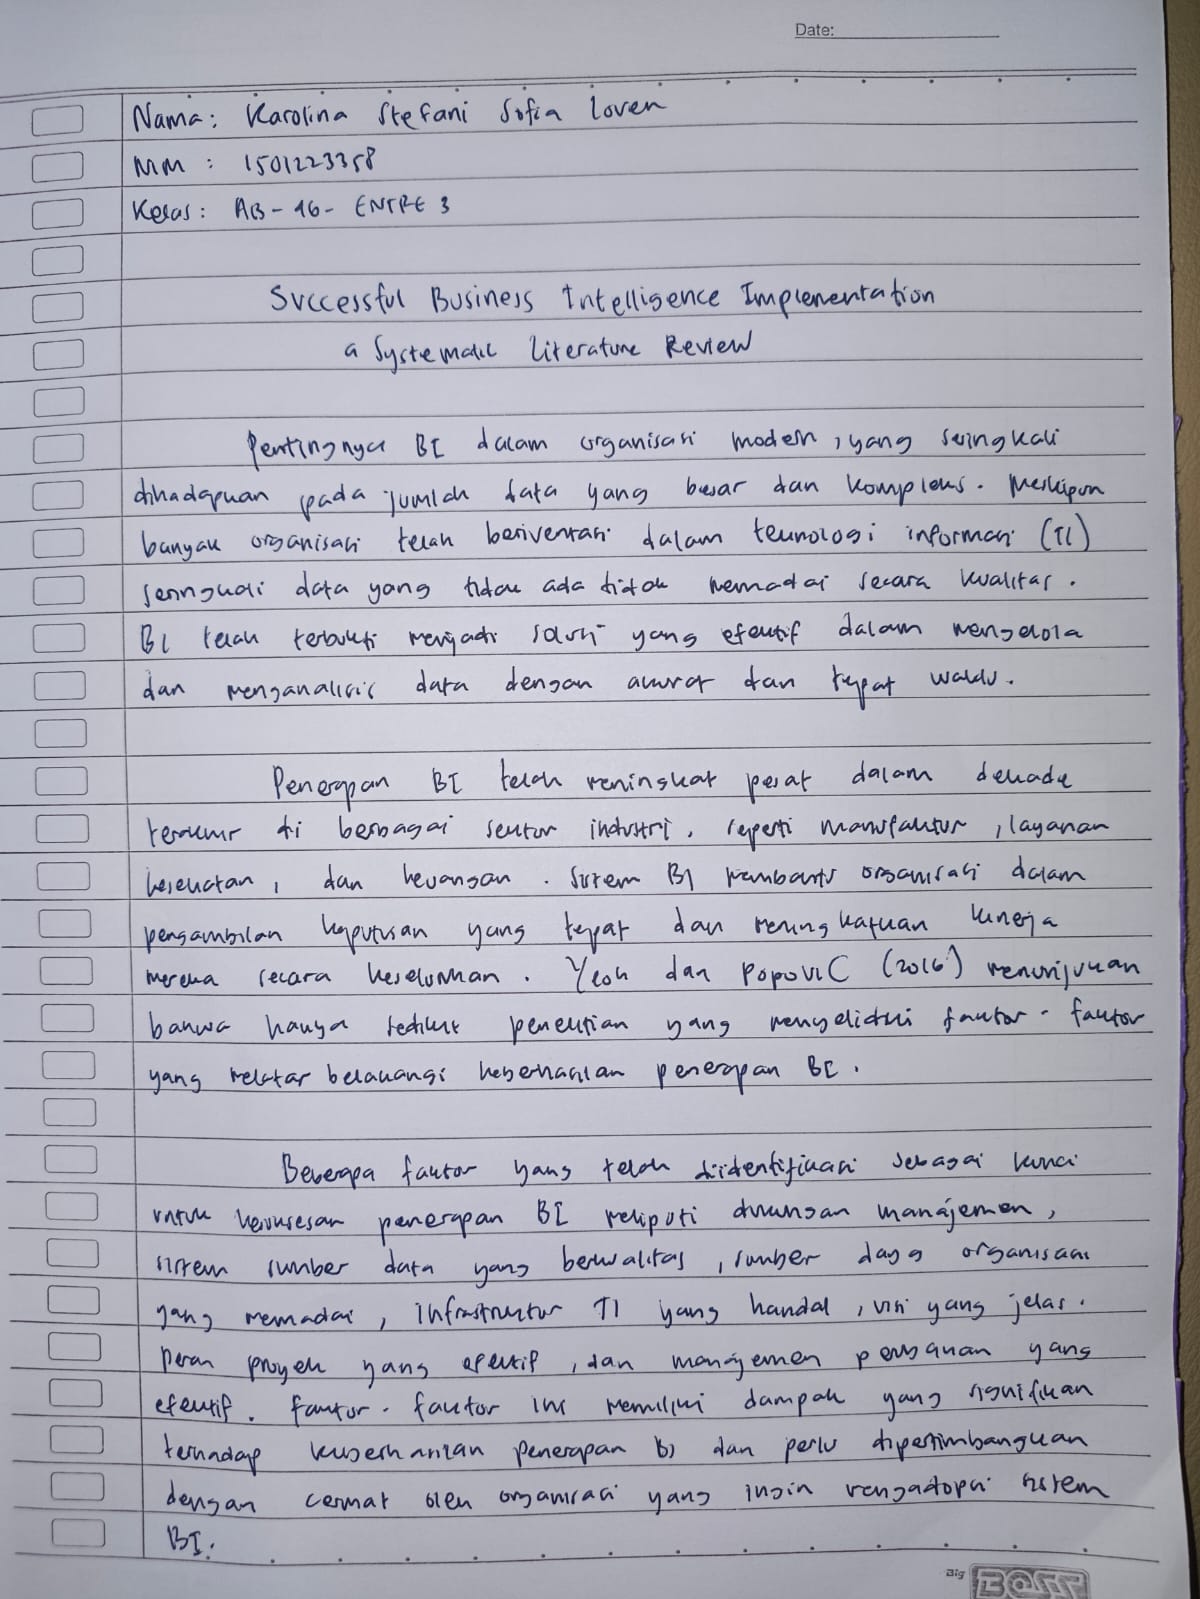 Date:
Nama: Karolina Stefani Sofia Loven
NIM : 1501223358
Kelas: AB-46-ENTRE 3
Successful Business Intelligence Implementation
a Systematic Literature Review
Pentingnya BI dalam organisasi modern, yang seringkali
dihadapkan pada jumlah data yang besar dan kompleks. Meskipun
banyak organisasi telah berinvestasi dalam teknologi informasi (TI)
seringkali data yang tidak ada tidak memadai secara kualitas.
BI telah terbukti menjadi solusi yang efektif dalam mengelola
dan menganalisis data dengan akurat dan tepat waktu.
Penerapan BI telah meningkat pesat dalam dekade
terakhir di berbagai sektor industri, seperti manufaktur, layanan
kesehatan, dan keuangan. Sistem BI membantu organisasi dalam
pengambilan keputusan yang tepat dan meningkatkan kinerja
mereka secara keseluruhan. Yeoh dan Popovic (2016) menunjukkan
bahwa hanya sedikit penelitian yang menyelidiki faktor-faktor
yang melatar belakangi keberhasilan penerapan BI.
Beberapa faktor yang telah diidentifikasi sebagai kunci
untuk kesuksesan penerapan BI meliputi dukungan manajemen,
sistem sumber data yang berkualitas, sumber daya organisasi
yang memadai, infrastruktur TI yang handal, visi yang jelas.
Peran proyek yang efektif, dan manajemen perubahan yang
efektif. Faktor-faktor ini memiliki dampak yang signifikan
terhadap keberhasilan penerapan BI dan perlu dipertimbangkan
dengan cermat oleh organisasi yang ingin mengadopsi sistem
BI.
Big BOSS